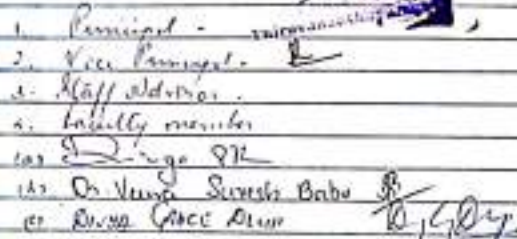 1. Principal -
2. Vice Principal -
3. Staff Advisor.
4. Faculty member
(a)
(b) Dr Veena Suresh Babu
(c) Divya Grace